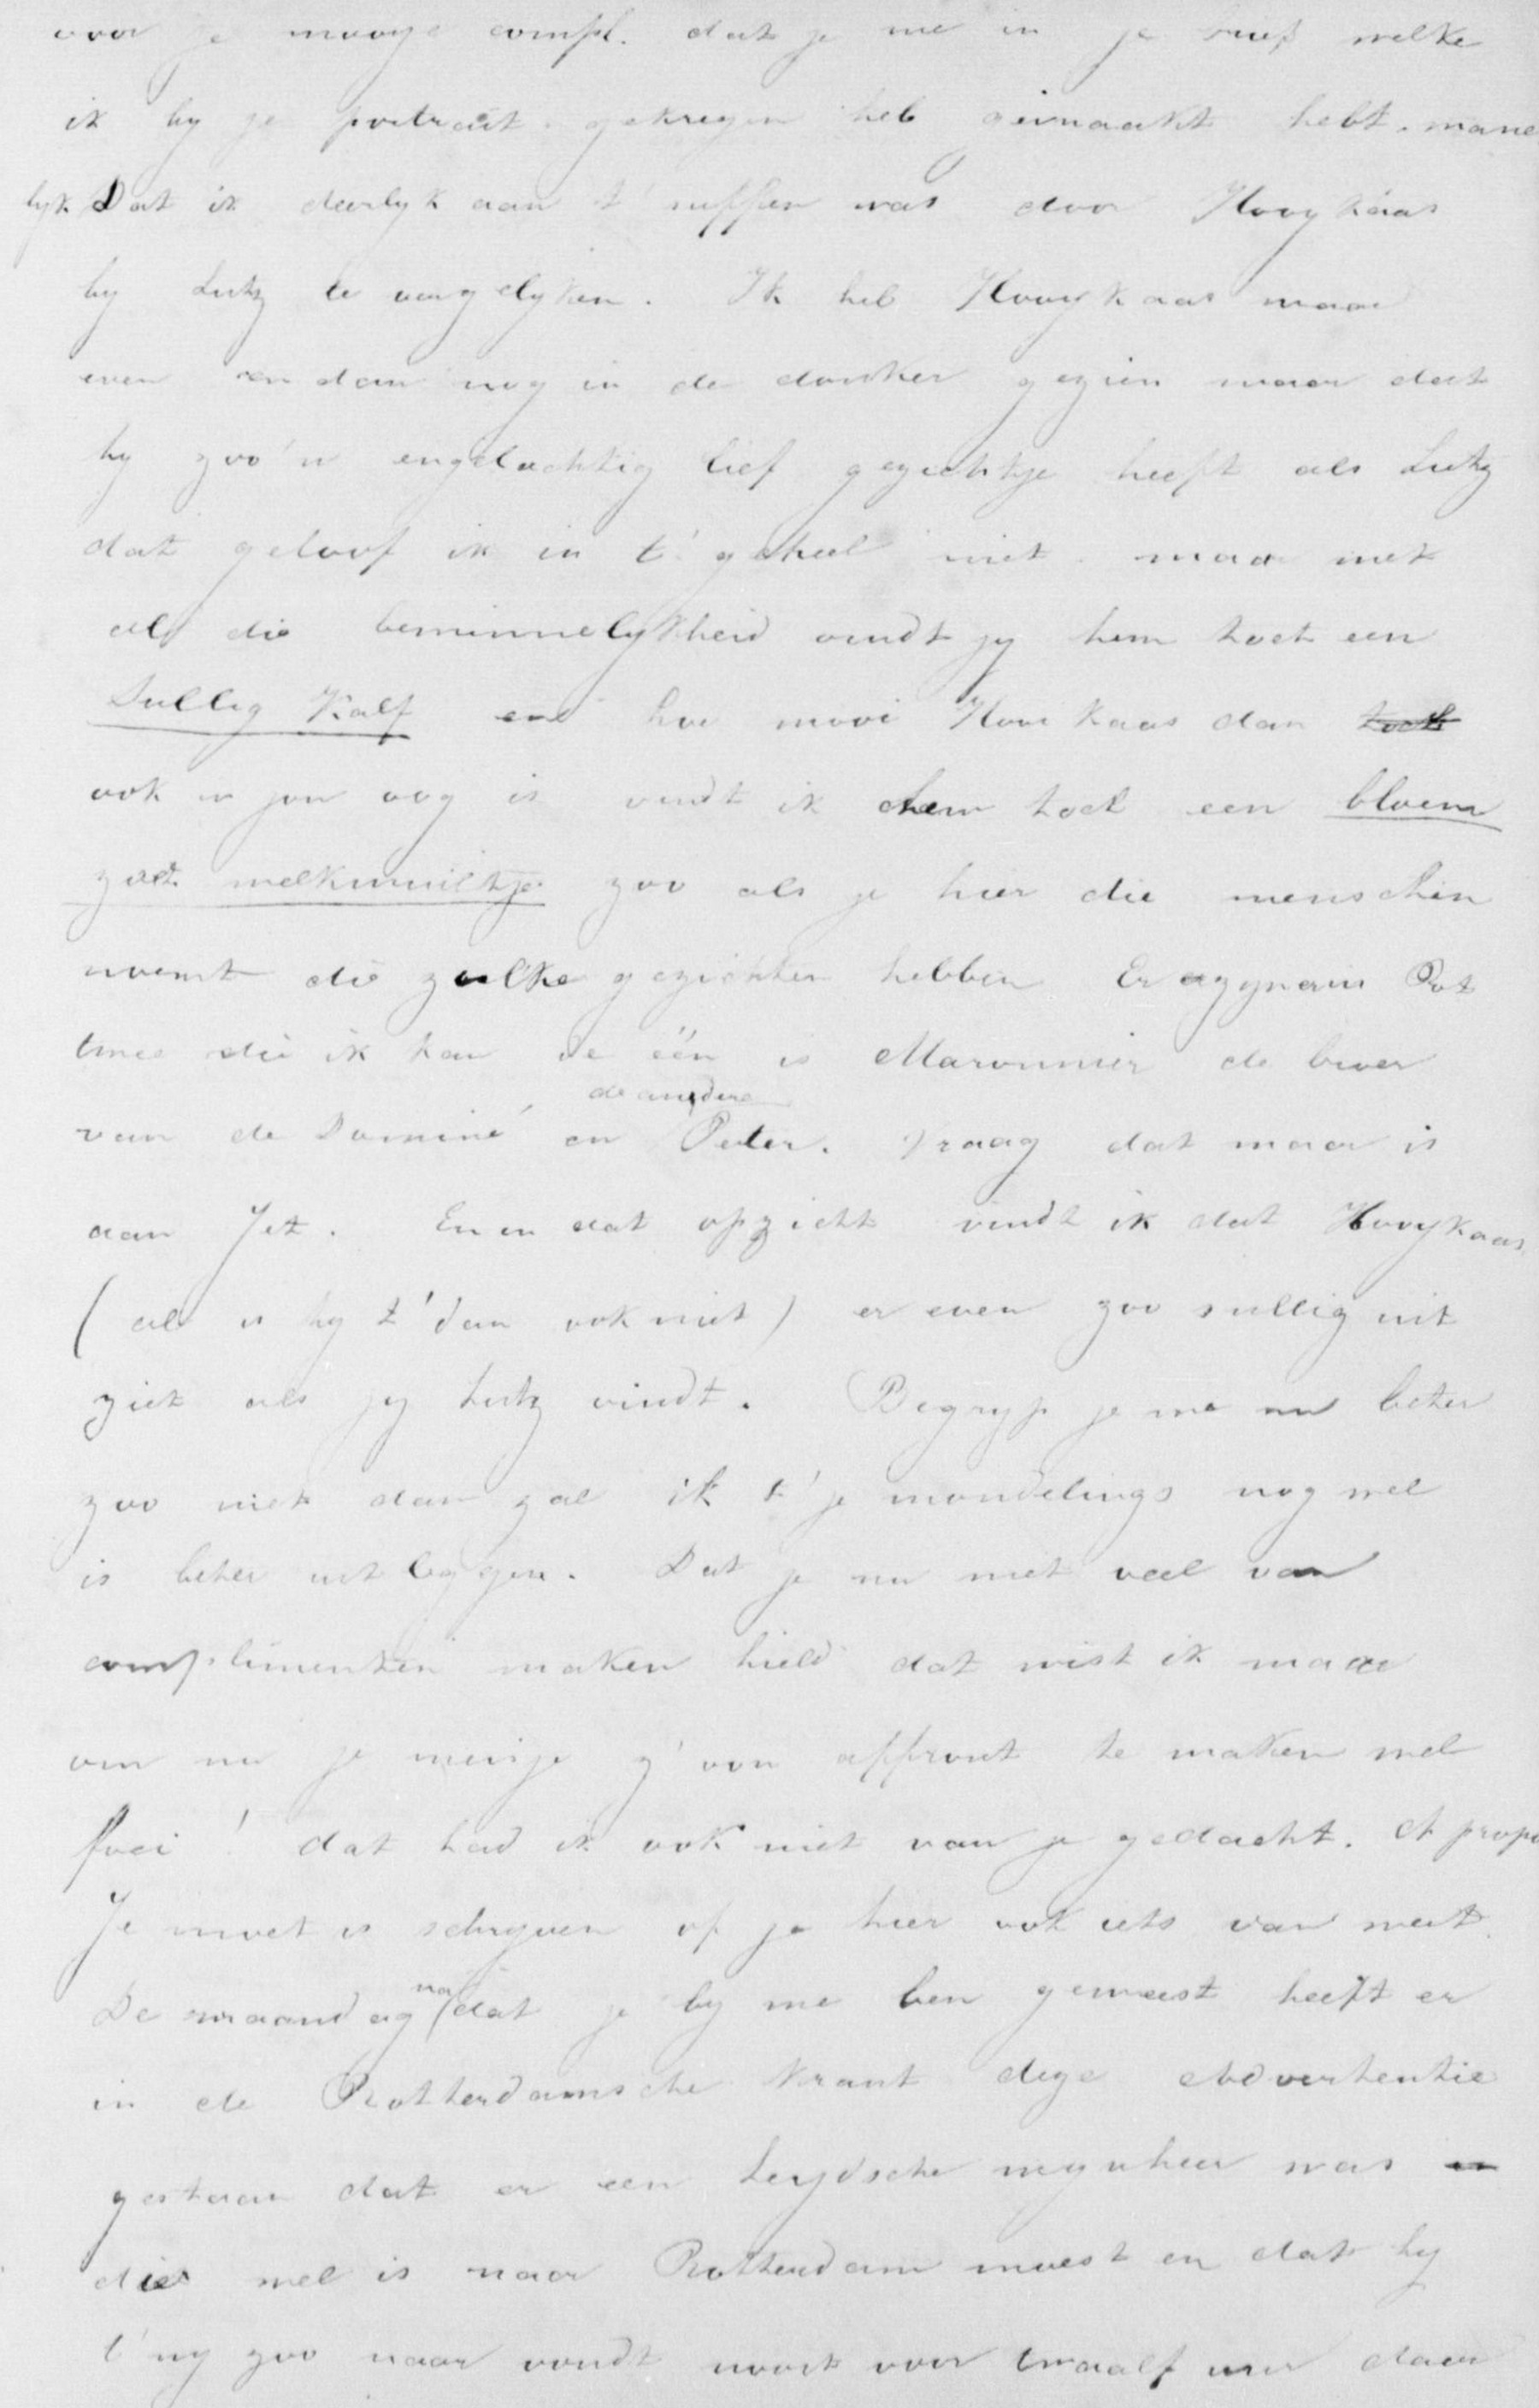 voor je mooye compl. dat je me in je brief welke
ik by je portrait gekregen heb gemaakt hebt. mame
lyk Dat ik deerlyk aan t' suffen was door Hooykaas
by Lutz te vergelyken. Ik heb Hooykaas maar
even en dan nog in de donker gezien maar dat
hy zoo'n engelachtig lief gezichtje heeft als Lutz
dat geloof ik in t' geheel niet. maar met
al die beminnelykheid vindt jy hem toch een
Sullig Kalf en hoe mooi Hooikaas dan toch
ook in jou oog is vindt ik hem toch een bloem
zoet melkmuiltje zoo als je hier die menschen
noemt die zulke gezichten hebben Er zyn er in Rot
twee die ik ken de één is Maronnier de broer
van de Dominé en de andere Peter. Vraag dat maar is
aan Jet. En in dat opzicht vindt ik dat Hooykaas
(al is hy t' dan ook niet) er even zoo sullig uit
ziet als jy Lutz vindt. Begryp je me nu beter
zoo niet dan zal ik t' je mondelings nog wel
is beter uitleggen. Dat je nu niet veel van
complimenten maken hield dat wist ik maar
om nu je meisje z' oon affront te maken wel
foei! dat had ik ook niet van je gedacht. A propo
Je moet is schryven of je hier ook iets van weet.
De maandag na dat je by me ben geweest heeft er
in de Rotterdamsche Krant deze Advertentie
gestaan dat er een Leydsche mynheer was en
die wel is naar Rotterdam moest en dat hy
t' ny zoo naar vondt nooit voor twaalf uur daar